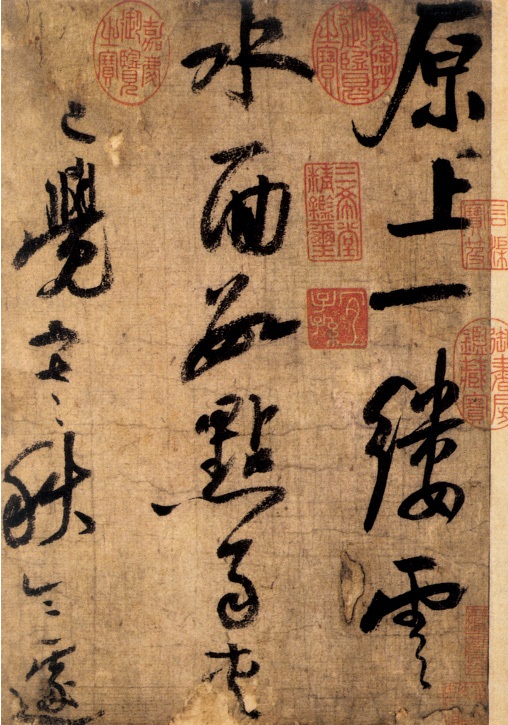 原上一縷雲
水面數點
已覺秋
石渠寶笈
御書房鑑藏寶
乾隆御覽之寶
三希堂精鑑璽
宜子孫
嘉慶御覽之寶